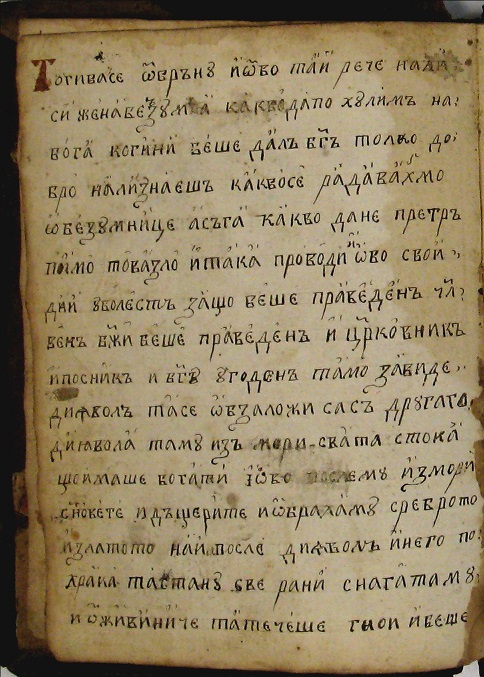 Тогивасе ѿврънꙋ иѡво таи рече
си женабезꙋмꙗ какведа по хꙋлимъ на
бога когини беше далъ бг҃ъ толко до
бро нализнаешъ каквосе радавахмо
ѡбезꙋмнице асъга какво дане претръ
пимо товазло итака проводи иѡво свои
дни ꙋболесть защо беше праведенъ чл҃
векъ бж҃и беше праведенъ и цр҃ковникъ
ипосникъ и бг҃ꙋ ꙋгоденъ тамо завиде
диѧволъ тасе ѡбзаложи сасъ дрꙋгаго
диѧвола тамꙋ изъ мори свата стока
що имаше богати іѡво после мꙋ измори
синовете идъщерите среброто
излатото наи после диѧволъ инего по
храни тастанꙋ све рани снагатамꙋ
и ѡживиниче татечеше гнои ибеше